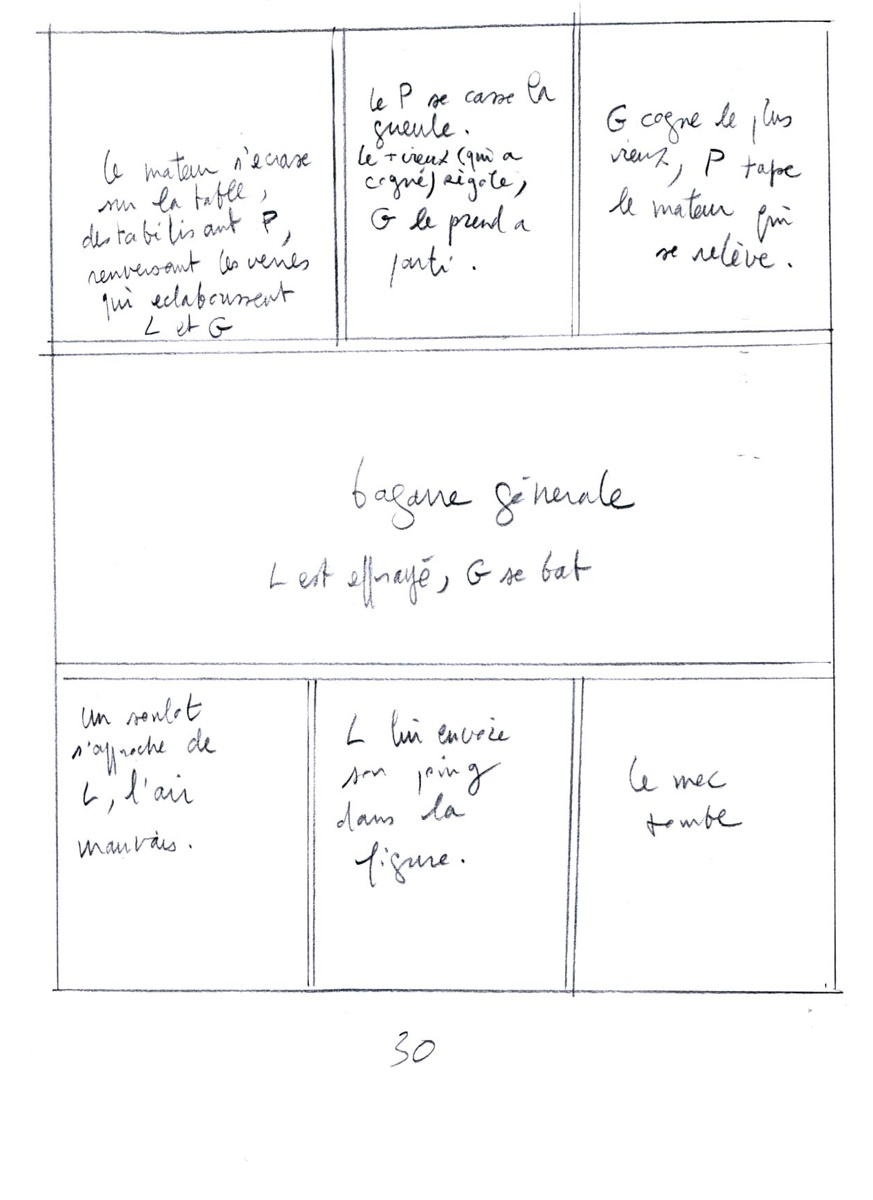 le mateur s'ecrase
sur la table,
destabilisant P,
renversant les verres
qui eclaboussent
L et G
le P se casse la
gueule.
le + vieux (qui a
cogné) rigole,
G le prend a
parti.
G cogne le plus
vieux, P tape
le mateur qui
se relève.
bagarre génerale
L est effrayé, G se bat
un soulot
s'approche de
L, l'air
mauvais.
L lui envoie
son poing
dans la
figure.
le mec
tombe
30